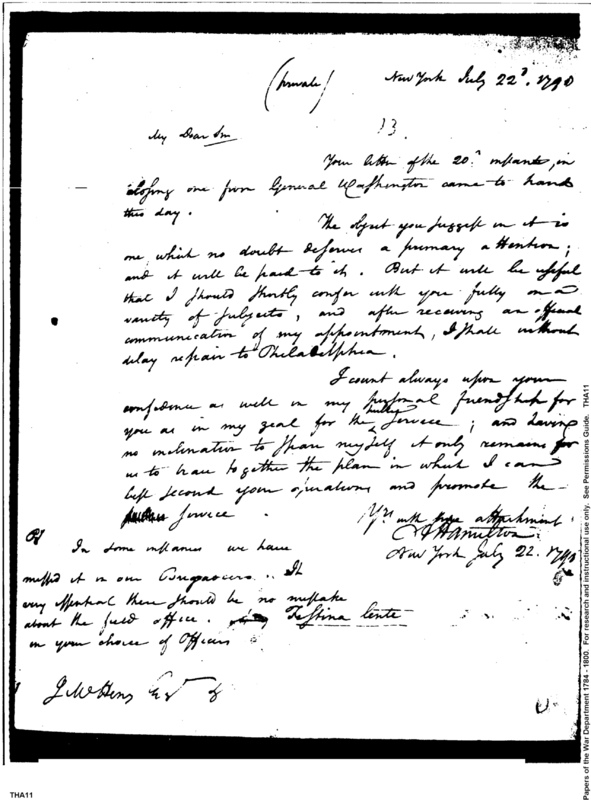 (private) New York July 22d. 1798
13.
My Dear Sir
Your letter of the 20th. instant, in
closing one from General Washington came to hand
this day.
The object you suggest in it is
one which no doubt deserves a primary attention;
and it will be paid to it. But it will be useful
that I should shortly confer with you fully on a
variety of subjects; and after receiving an official
communication of my appointment, I shall without
delay repair to Philadelphia.
I count always upon your
confidence as well in my personal friendship for
you as in my zeal for the public Service; and having
no inclination to spare myself it only remains for
us to trace together the plan in which I can
best second your operations and promote the
Service.
Yrs with attachment
A Hamilton
New York July 22. 1798
In some instances we have
missed it in our Brigadiers. It
very essential there should be no mistake
about the field office. Festina lente
in your choice of Officers
J McHenry Esqr
Papers of the War Department 1784 - 1800. For research and instructional use only. See Permissions Guide. THA11
THA11